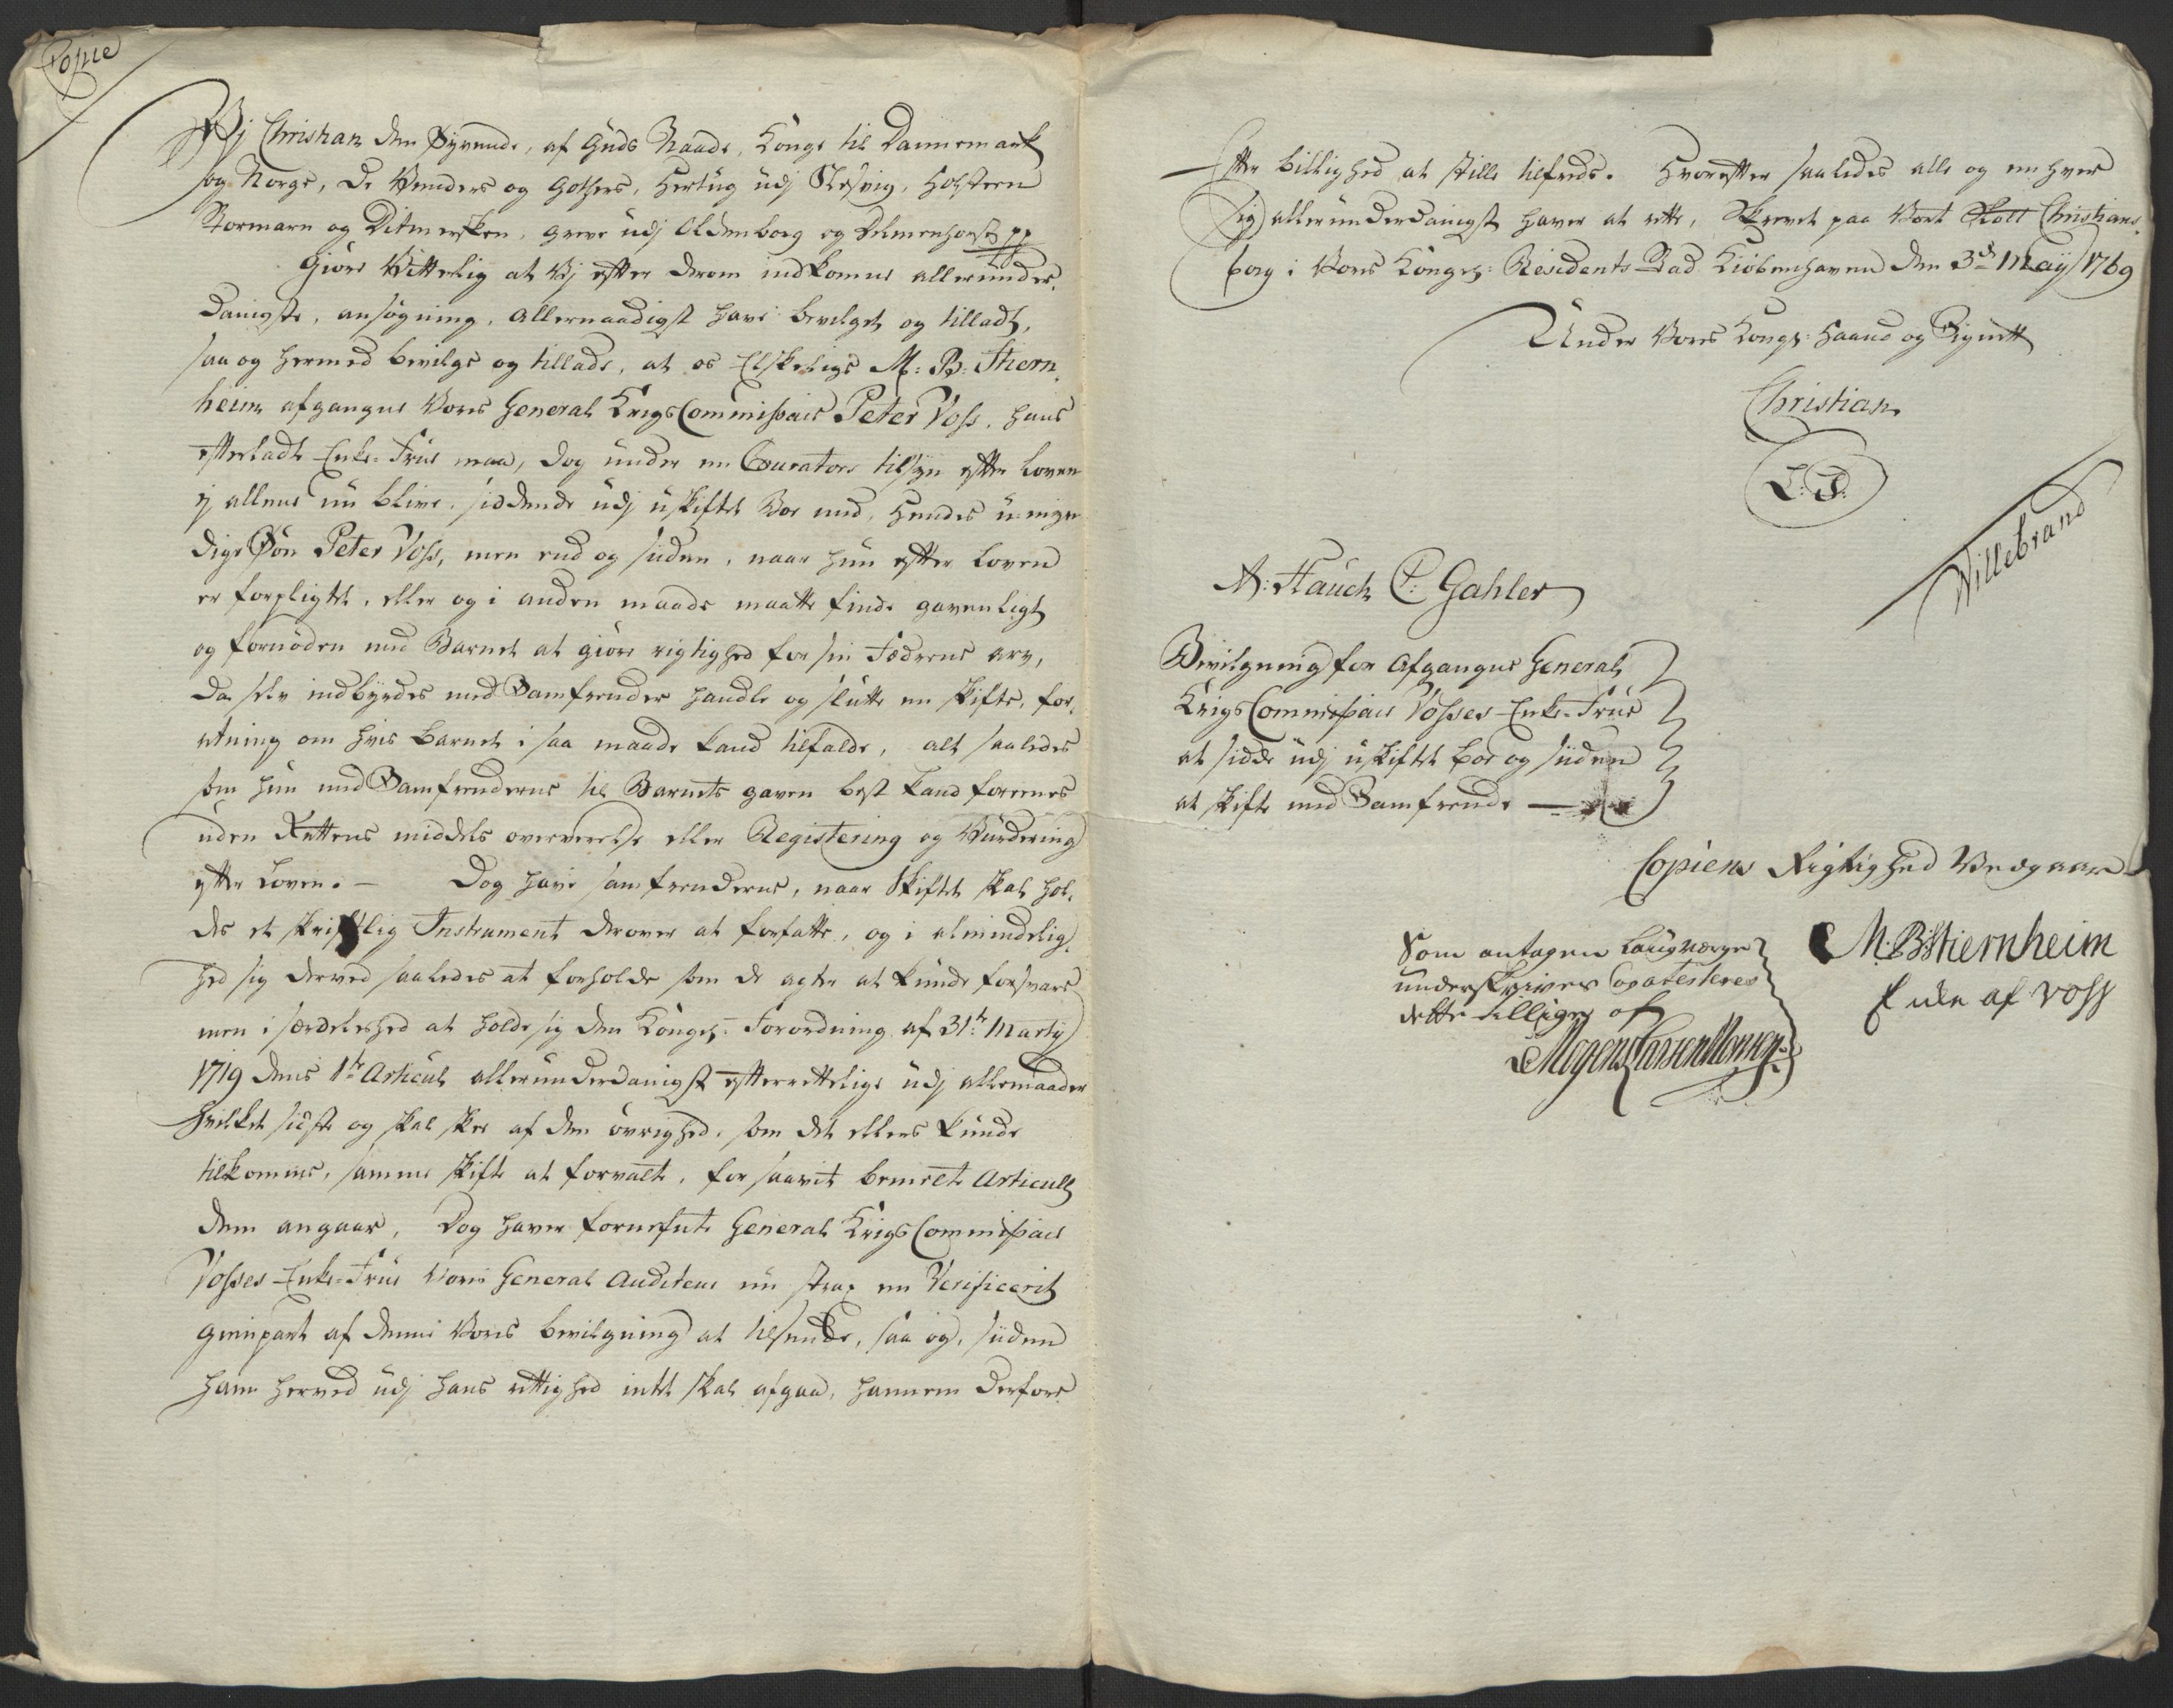 Copie
Wj Christian den Syvende, af Guds Naade, Konge til Dannemark
og Norge, De Venders og Gothers, Hertug udj Slesvig, Holsteen
Stormarn og Ditmersken, Greve udj Oldenborg og Delmenhorst pp
Giöre Vitterlig at Vj efter derom indkomne allerunder,
danigste, ansøgning, allernaadigst have bevilget og tilladt,
saa og hermed bevilge og tillade, at os Elskelige M: B: Stiern,
heim afgangne Vores General KrigsCommissair Peter Voss, hans
efterladte Enke-Frue maa, dog under en Curators tilsyn efter Loven
ej allene nu blive, siddende udj uskiftet Boe med, hendes u-myn
dige Søn Peter Voss, men end og siiden, naar hun efter Loven
er forpligtet, eller og i anden maade maatte finde gavenligt
og fornöden med Barnet at giöre rigtighed for sin Fædrene arv,
da selv indbyrdes med Samfrender handle og slutte en Skifte, for,
retning om hvis Barnet i saa maade kand tilfalde, alt saaledes
som hun med Samfrenderne til Barnets gaven best kand foreenes
uden Rettens middels oververelse eller Registering og Vurdering
efter Loven. — Dog have samfrenderne, naar Skiftet skal hol,
des et skriftlig Instrument derover at forfatte, og i almindelig,
hed sig derved saaledes at forholde som de agter at kunde forsvare
men i særdeleshed at holde sig den Kongel: Forordning af 31te Martij
1719 dens 1te Articul allerunderdanigst efterrettelige udj allemaader
hvilket sidste og skal skee af den övrighed, som det ellers kunde
tilkomme, samme skifte at forvalte, for saavit bemelte Articul
dem angaar, Dog haver fornefnte General KrigsCommissair
Vosses Enke-Frue Vores General Auditeur nu strax en Verificerit
Genpart af denne Vores bevilgning at tilsende, saa og, siiden
ham herved udj hans rettighed intet skal afgaa, hannem derfore
Efter billighed at stille tilfreds. Hvorefter saaledes alle og enhver
sig allerunderdanigst haver at rette, Skrevet paa Vort Slott Christians,
borg i Vores Kongel: Residents Stad Kiöbenhavn den 3de Maij 1769
Under Vores Kongl: Haand og Signett
Christian
L: S:
Willebrand
A: Hauch P: Gahler
Bevilgning for Afgangne General
KrigsCommissair Vosses Enke-Frue
at sidde udj uskiftet boe og siiden
at skifte med Samfrende —
Copiens Rigtighed Vedgaar
M. B Stiernheim
Enke af Voss
Som antagen Laugværge
underskriver
dette tillige af